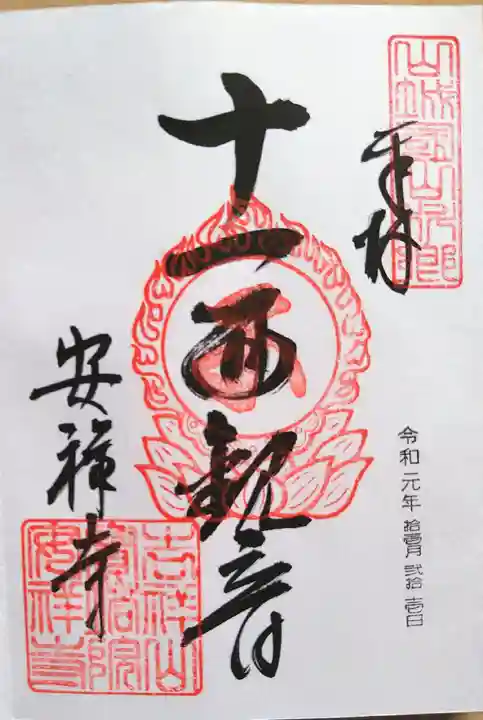 山城國山科郷
奉拝
令和元年 拾壹月 弐拾壱日
十一面観音
安祥寺
吉祥山
寳塔院
安祥寺